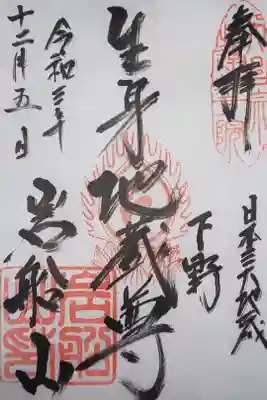 奉拝
日本三大地蔵
下野
生身地蔵尊
岩船山
令和三年
十二月五日